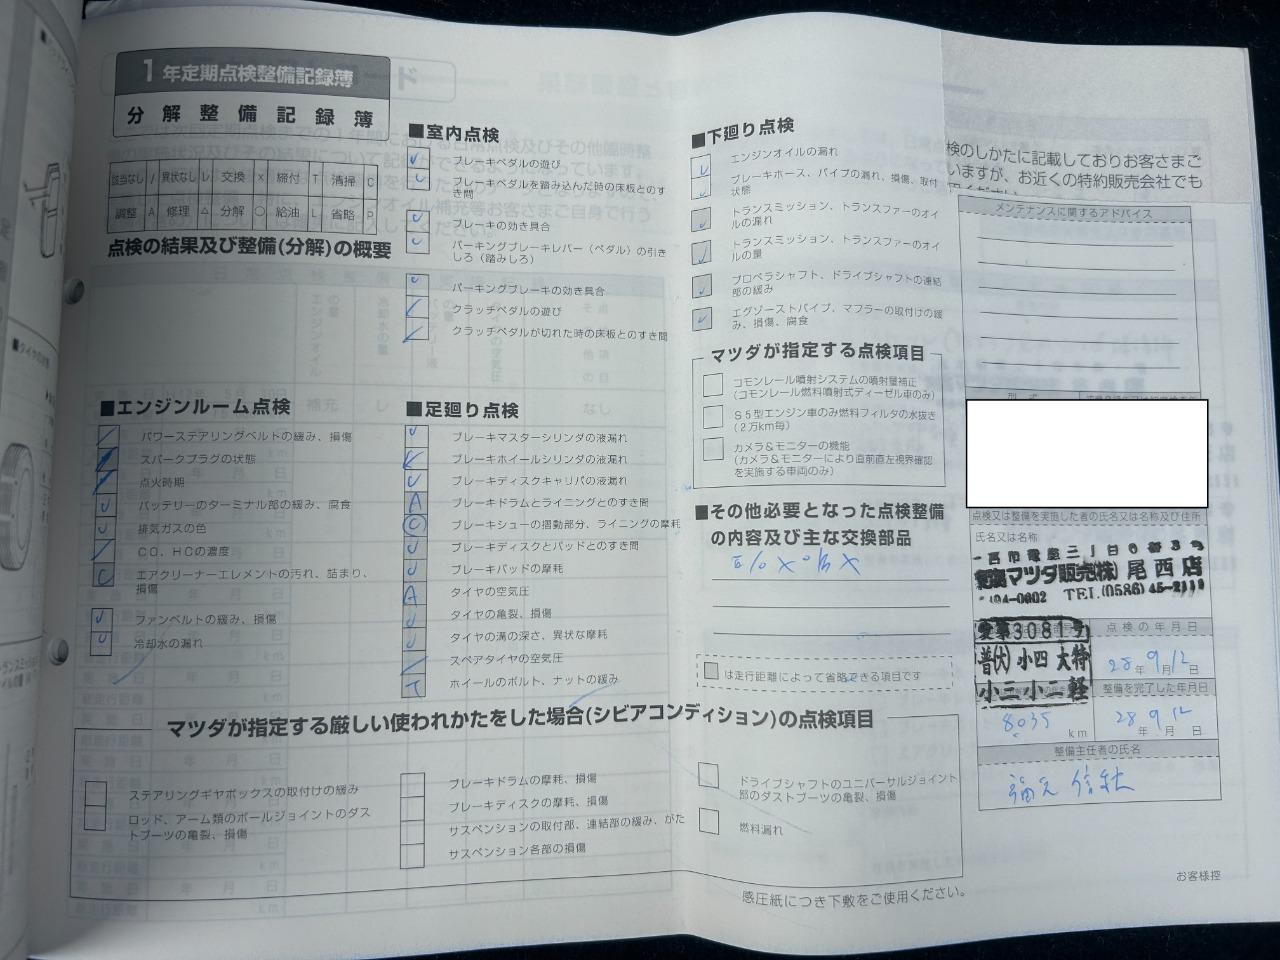 1年定期点検整備記録簿
分解整備記録簿
該当なし / 異状なし レ 交換 × 締付 T 清掃 C
調整 A 修理 △ 分解 ○ 給油 L 省略 P
点検の結果及び整備(分解)の概要
■エンジンルーム点検
パワーステアリングベルトの緩み、損傷
スパークプラグの状態
点火時期
バッテリーのターミナル部の緩み、腐食
排気ガスの色
CO、HCの濃度
エアクリーナーエレメントの汚れ、詰まり、
損傷
ファンベルトの緩み、損傷
冷却水の漏れ
■室内点検
ブレーキペダルの遊び
ブレーキペダルを踏み込んだ時の床板とのす
き間
ブレーキの効き具合
パーキングブレーキレバー（ペダル）の引き
しろ（踏みしろ）
パーキングブレーキの効き具合
クラッチペダルの遊び
クラッチペダルが切れた時の床板とのすき間
■足廻り点検
ブレーキマスターシリンダの液漏れ
ブレーキホイールシリンダの液漏れ
ブレーキディスクキャリパの液漏れ
A ブレーキドラムとライニングとのすき間
ブレーキシューの摺動部分、ライニングの摩耗
ブレーキディスクとパッドとのすき間
ブレーキパッドの摩耗
A タイヤの空気圧
タイヤの亀裂、損傷
タイヤの溝の深さ、異状な摩耗
スペアタイヤの空気圧
T ホイールのボルト、ナットの緩み
■下廻り点検
エンジンオイルの漏れ
ブレーキホース、パイプの漏れ、損傷、取付
状態
トランスミッション、トランスファーのオイ
ルの漏れ
トランスミッション、トランスファーのオイ
ルの量
プロペラシャフト、ドライブシャフトの連結
部の緩み
エグゾーストパイプ、マフラーの取付けの緩
み、損傷、腐食
マツダが指定する点検項目
コモンレール噴射システムの噴射量補正
（コモンレール燃料噴射式ディーゼル車のみ）
S5型エンジン車のみ燃料フィルタの水抜き
（2万km毎）
カメラ＆モニターの機能
（カメラ＆モニターにより直前直左視界確認
を実施する車両のみ）
■その他必要となった点検整備
の内容及び主な交換部品
は走行距離によって省略できる項目です
マツダが指定する厳しい使われかたをした場合(シビアコンディション)の点検項目
ステアリングギヤボックスの取付けの緩み
ロッド、アーム類のボールジョイントのダス
トブーツの亀裂、損傷
ブレーキドラムの摩耗、損傷
ブレーキディスクの摩耗、損傷
サスペンションの取付部、連結部の緩み、がた
サスペンション各部の損傷
ドライブシャフトのユニバーサルジョイント
部のダストブーツの亀裂、損傷
燃料漏れ
感圧紙につき下敷をご使用ください。
検のしかたに記載しておりお客さまご
ていますが、お近くの特約販売会社でも
メンテナンスに関するアドバイス
点検又は整備を実施した者の氏名又は名称及び住所
氏名又は名称
マツダ販売(株) 尾西店
TEL.(0586)45-2111
愛第3081号
普(伏) 小四 大特
小三 小二 軽
点検の年月日
28年9月12日
整備を完了した年月日
28年9月12日
8035 km
整備主任者の氏名
お客様控